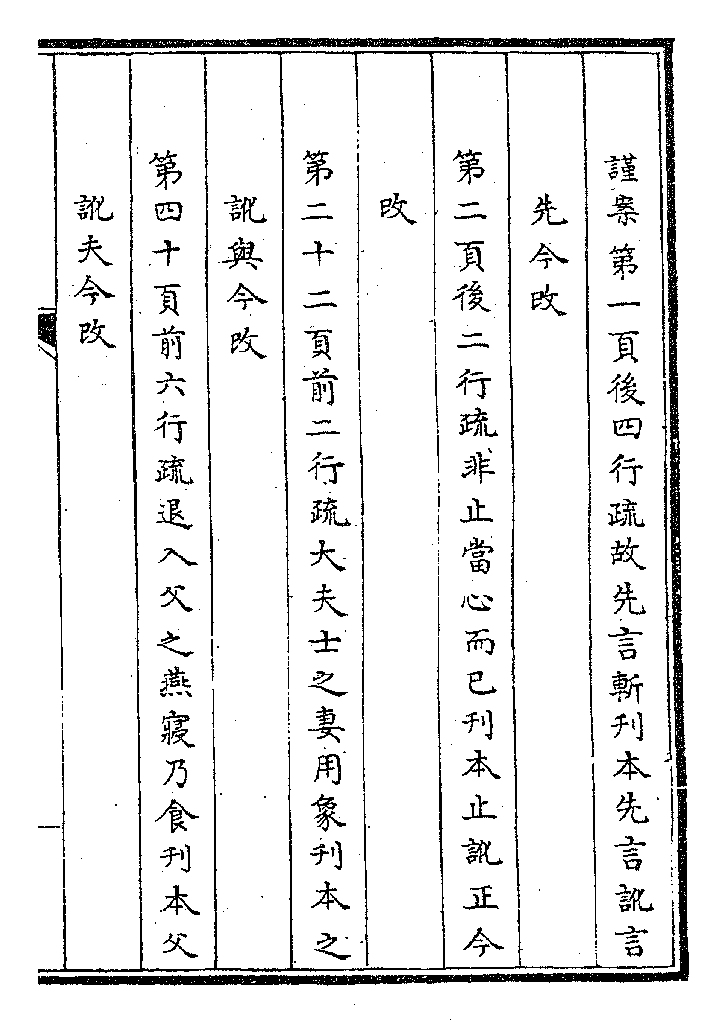 謹案第一頁後四行疏故先言斬刊本先言訛言
先今改
第二頁後二行疏非止當心而已刊本止訛正今
改
第二十二頁前二行疏大夫士之妻用象刊本之
訛與今改
第四十頁前六行疏退入父之燕寢乃食刊本父
訛夫今改